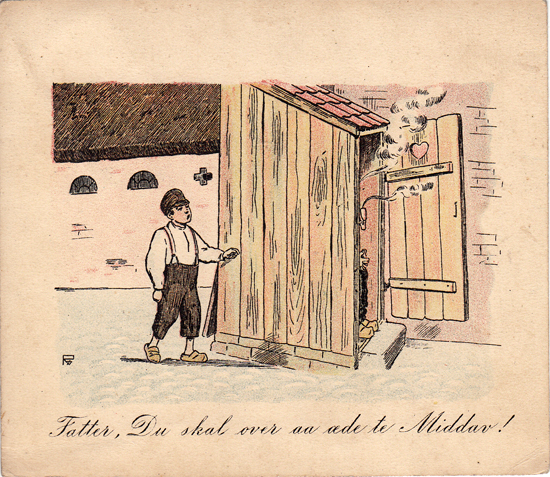 Fatter, Du skal over aa æde te Middav!